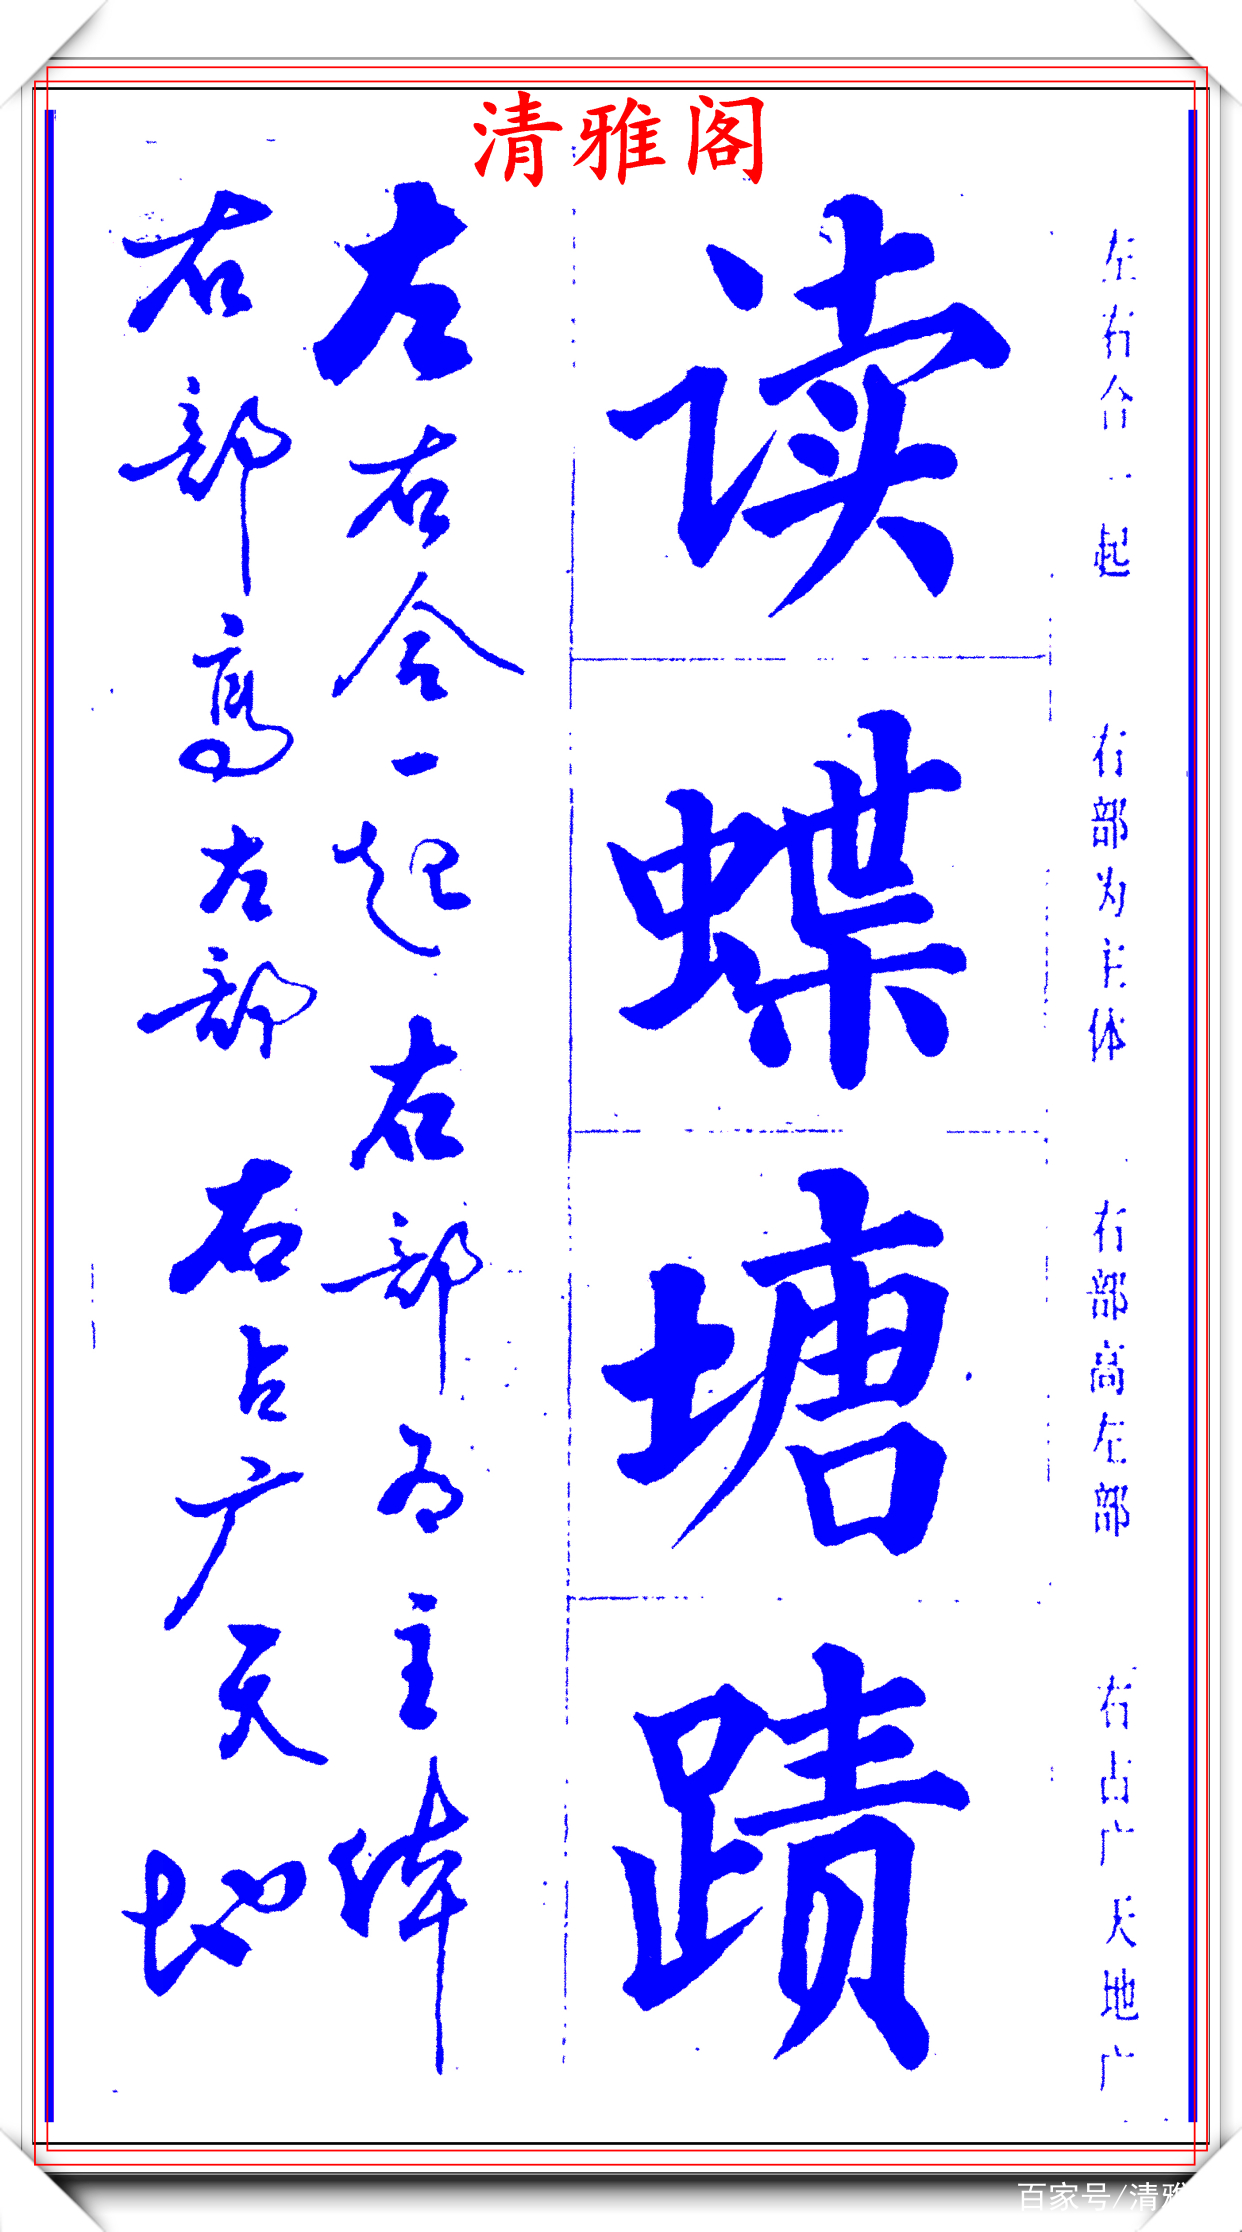 清雅阁
左右合一起 右部为主体 右部高左部 右占广天地广
读蝶塘蹟
左右合一起右部为主体
右部高左部右占广天地
百家号/清雅